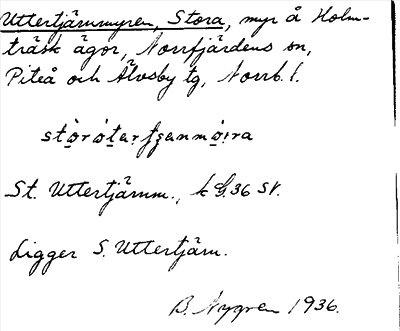 Uttertjärnmyren, Stora, myr å Holm-
träsk ägor, Norrfjärdens sn,
Piteå och Älvsby tg, Norrb. l.
St. Uttertjärnm., k G.36 SV.
Ligger S. Uttertjärn.
B. Nygren 1936.